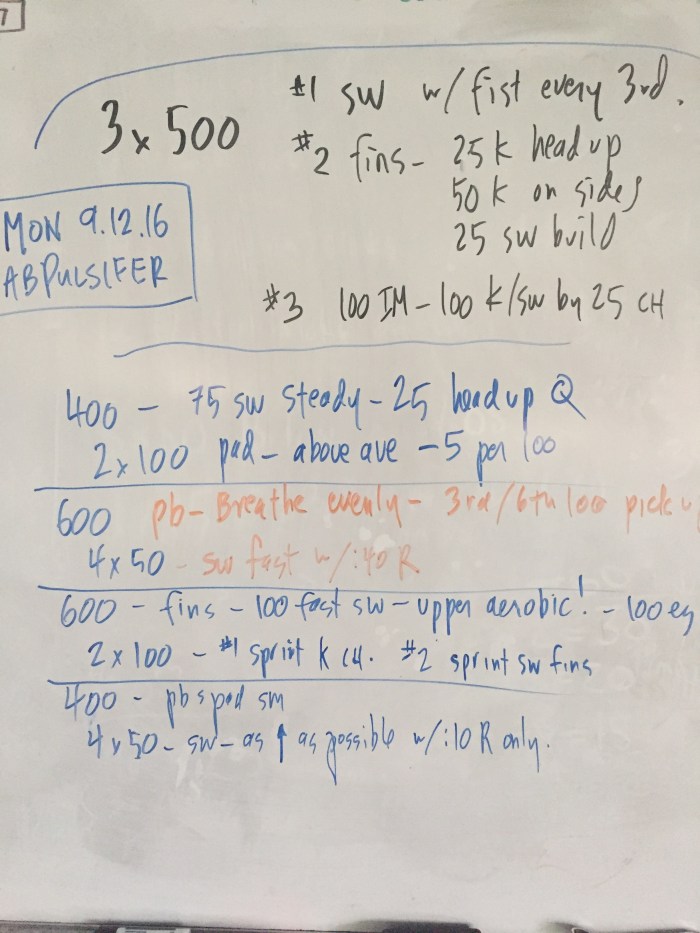 7
3 x 500
#1 sw w/ fist every 3rd.
#2 fins - 25 k head up
50 k on sides
25 sw build
#3 100 IM - 100 k/sw by 25 CH
MON 9.12.16
ABPULSIFER
400 - 75 sw steady - 25 head up Q
2 x 100 pad - above ave - 5 per 100
600 pb - Breathe evenly - 3rd/6th 100 pick u
4 x 50 - sw fast w/ :40 R
600 - fins - 100 fast sw - upper aerobic! - 100 es
2 x 100 - #1 sprint k CH. #2 sprint sw fins
400 - pb sm
4 x 50 - sw - as ↑ as possible w/ :10 R only.